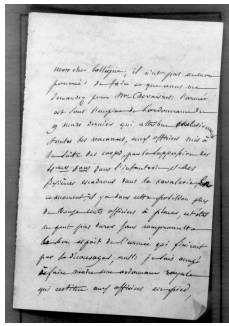 mon cher collègue, il n'est pas en mon
pouvoir de faire ce que vous me
demandez pour Mr l'armée
est sous l'empire de l'ordonnance du
9 mars dernier qui attribue
toutes les vacances, aux officiers mis à
la suite des corps, par la suppression des
4mes dans l'infanterie et des
escadrons dans la cavalerie
ce moment il y a dans cette position plus
de officiers à placer,
ne peut pas durer sans compromettre
le bon esprit de l'armée qui finirait
par se décourager,
à faire rendre une ordonnance royale
qui restitue aux officiers en pied,